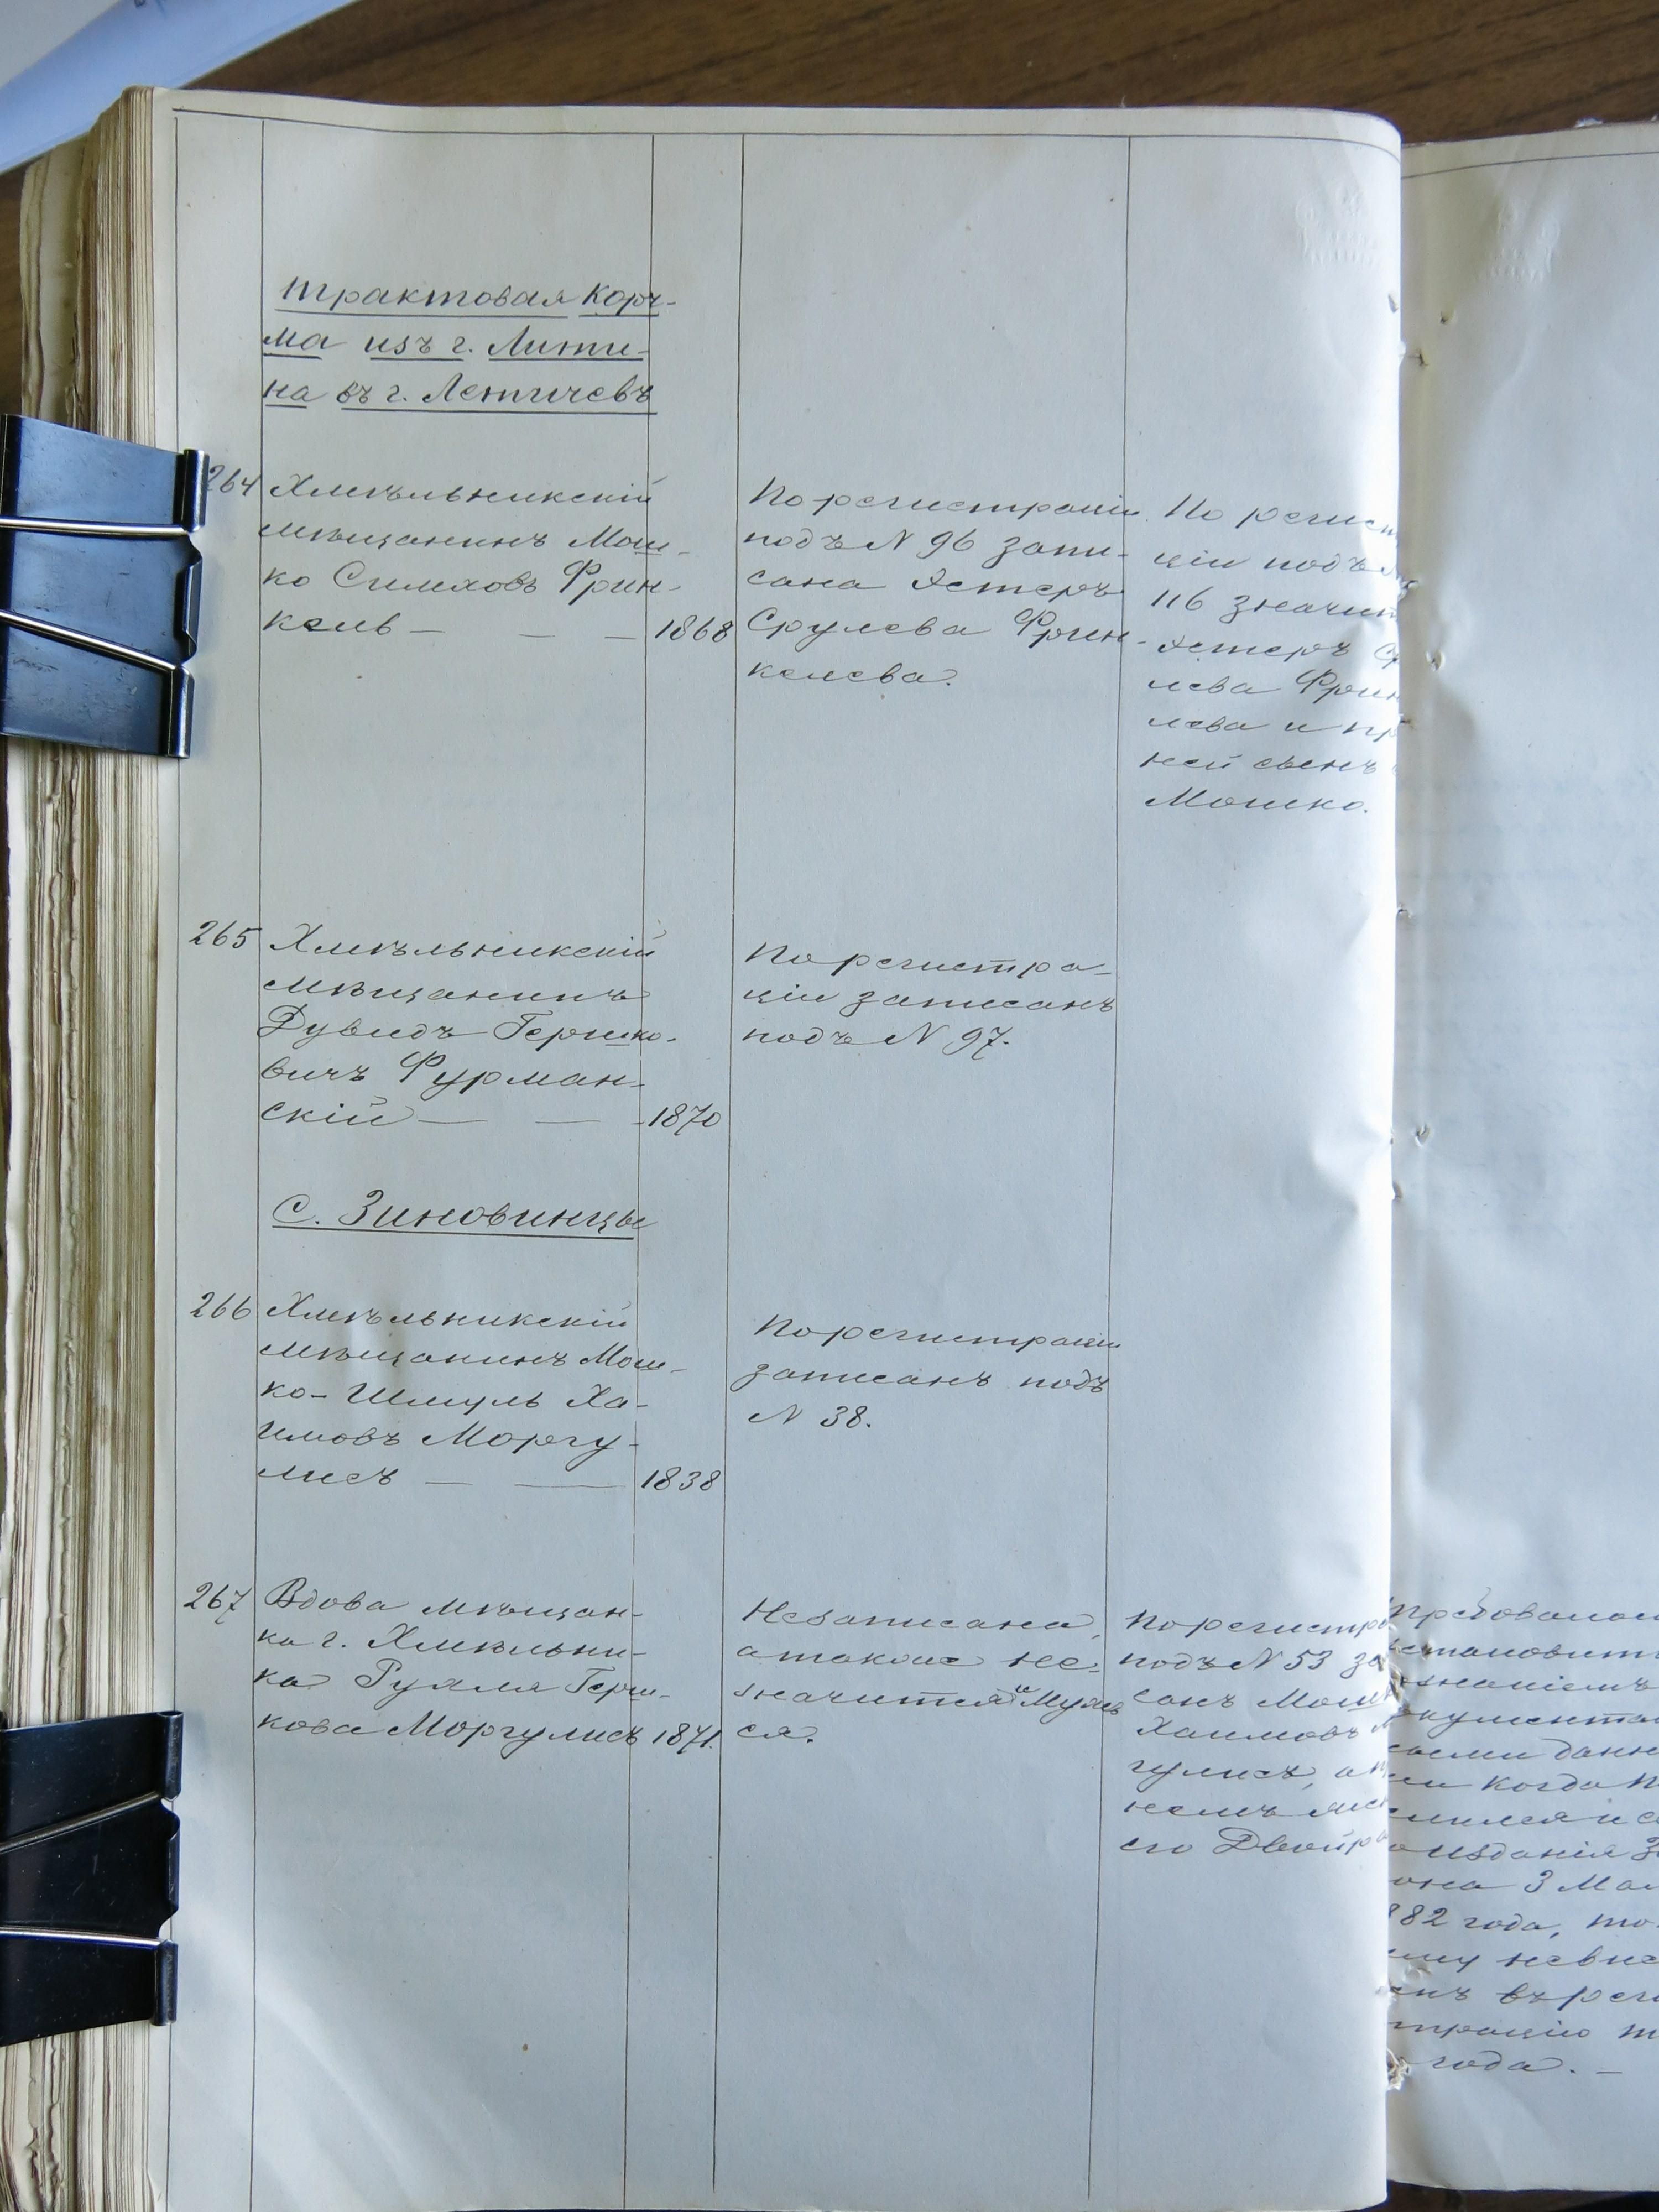 Трактовая Корч-
ма изъ г. Лити-
на въ г. Летичевъ
264
Хмѣльникскій
мѣщанинъ Мош-
ко Симховъ Фрин-
кель — — — 1868
По регистраціи
подъ N 96 запи-
сана Эстеръ
Срулева Фрин-
келева.
По регист
ціи подъ
116 значит
Эстеръ С
лева Фрин
лева и пр
ней сынъ
Мошко.
265
Хмѣльникскій
мѣщанинъ
Дувидъ Гершко-
вичъ Фурман-
скій — — 1870
По регистра-
ціи записанъ
подъ N 97.
С. Зиновинцы
266
Хмѣльникскій
мѣщанинъ Мош-
ко-Шмуль Ха-
имовъ Моргу-
лисъ — — 1838
По регистраціи
записанъ подъ
N 38.
267
Вдова мѣщан-
ка г. Хмѣльни-
ка Рухля Герш-
кова Моргулисъ 1871.
Незаписана,
а также не-
значится и
ся.
По регистр
подъ N 53 за
санъ Мошк
Хаимовъ М
гулисъ, а п
немъ
его Двойра
требовалос
становит
кумента
ыми данн
и когда п
лился и с
изданія З
она 3 Мая
82 года, по
му невнес
нъ въ реги
трацію
года. —